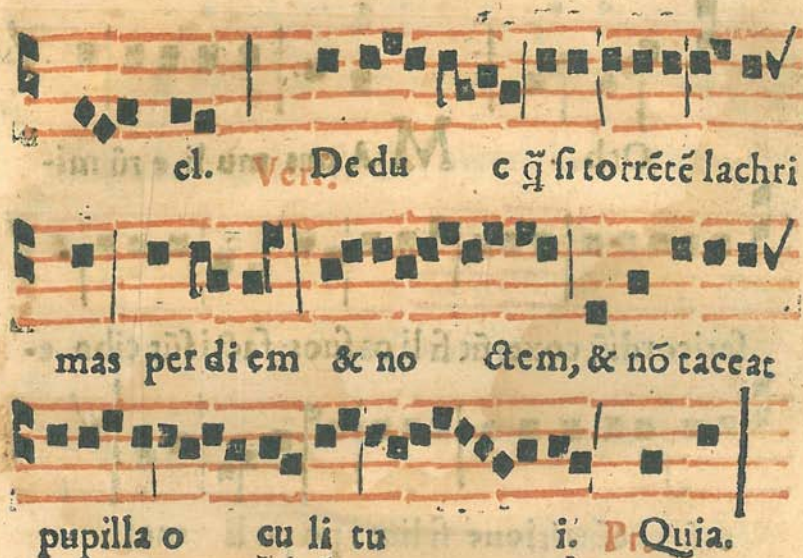 el. Vers. De du c q̃ si torrẽtẽ lachri
mas per di em & no ctem, & nõ taceat
pupilla o cu li tu i. Pr Quia.